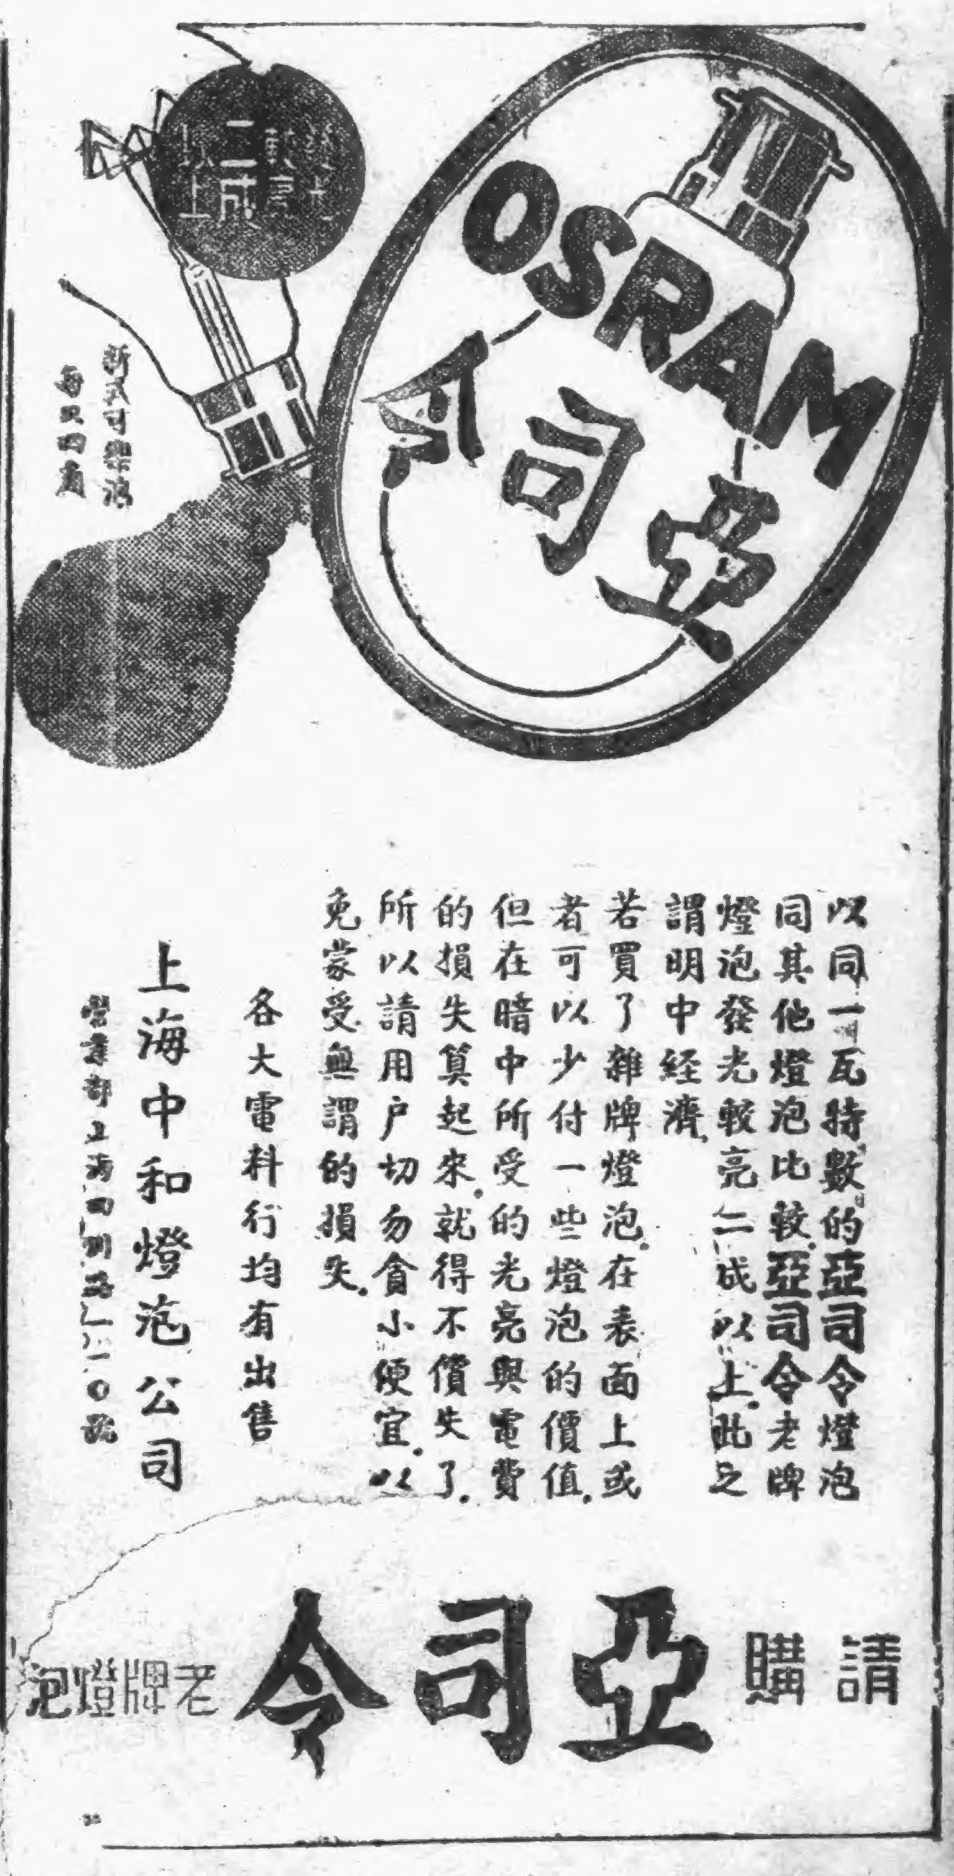 OSRAM
亞司令
發光
較亮
二成
以上
每只四角
以同一瓦特數的亞司令燈泡
同其他燈泡比較亞司令老牌
燈泡發光較亮二成以上.此之
謂明中経濟.
若買了雜牌燈泡.在表面上或
者可以少付一些燈泡的價值.
但在暗中所受的光亮與電費
的損失算起來.就得不償失了.
所以請用户切勿貪小便宜.以
免蒙受無謂的損失.
各大電料行均有出售
上海中和燈泡公司
營業部上海四川路一一〇號
請購
亞司令
老牌燈泡